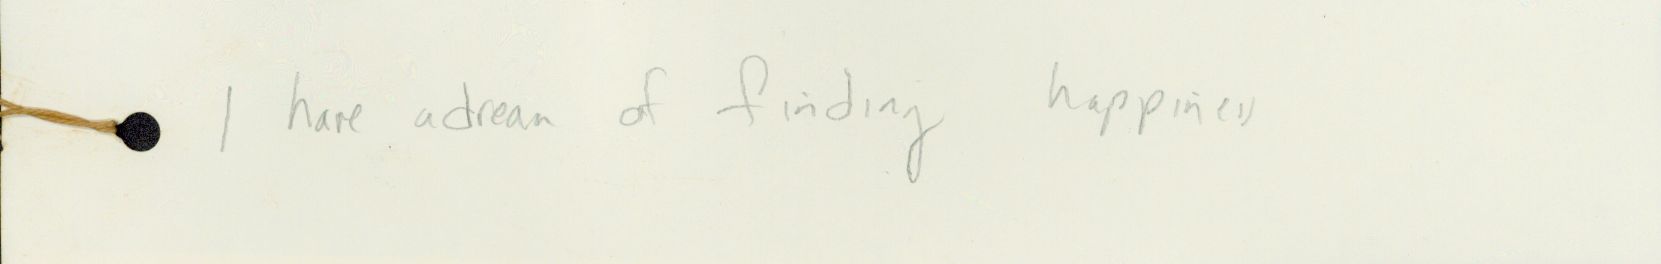 I have a dream of finding happiness